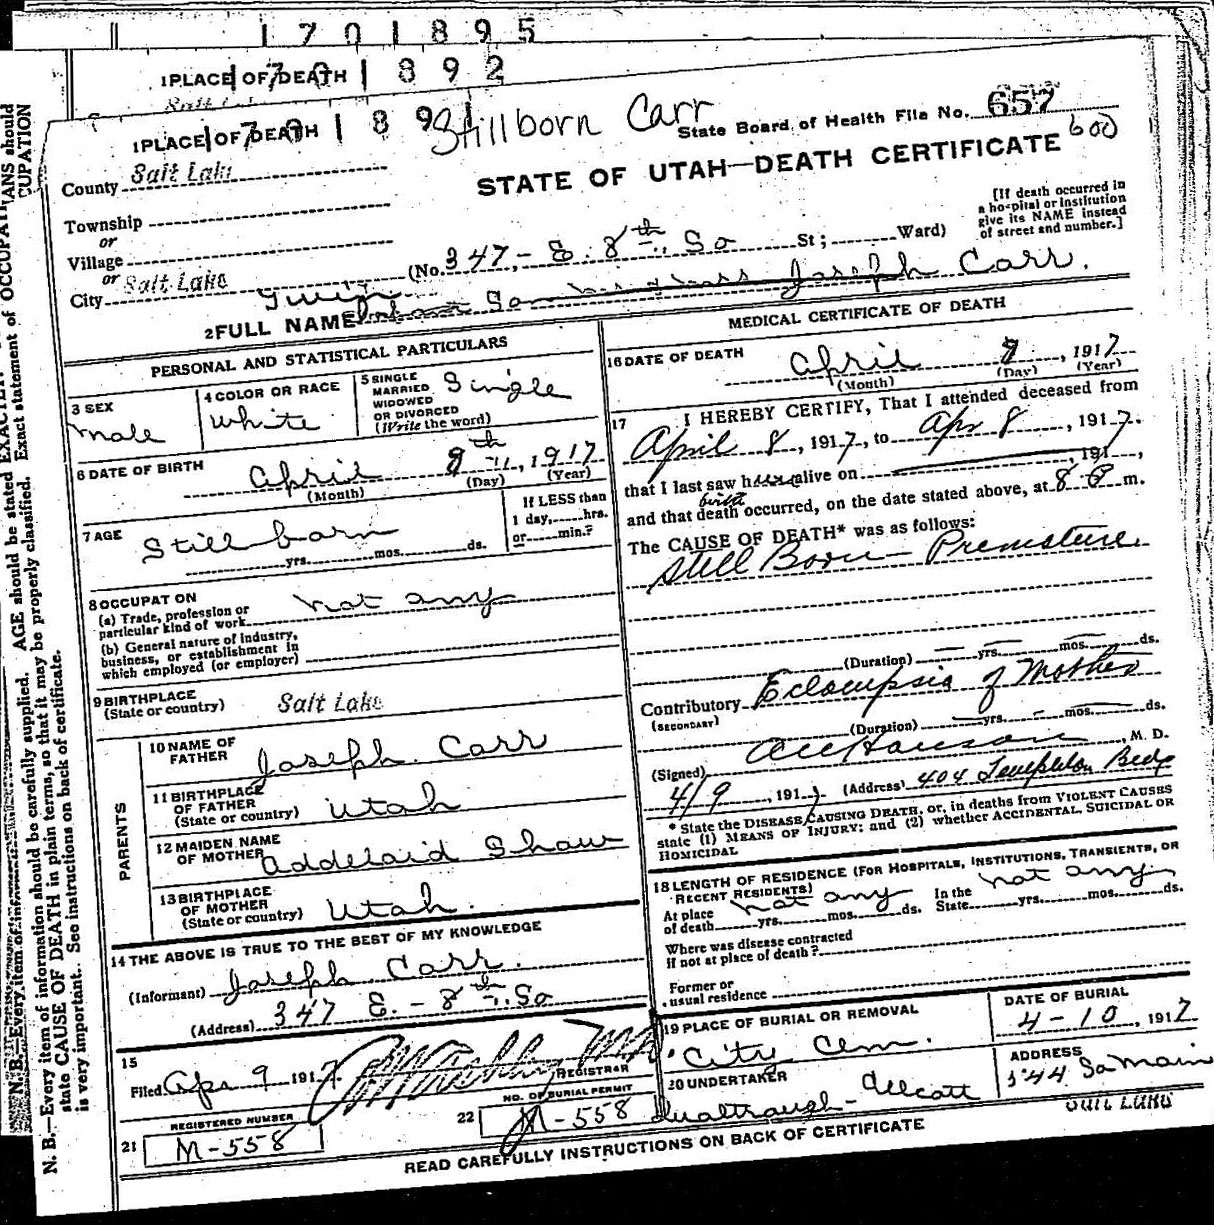 1 7 0 1 8 9 5
1 PLACE OF DEATH 1 7 0 1 8 9 2
Salt L
1 PLACE OF DEATH 1 7 0 1 8 9 1 Stillborn Carr State Board of Health File No. 657
600
County Salt Lake STATE OF UTAH—DEATH CERTIFICATE
Township
or
Village
or
City Salt Lake (No. 347 - E. 8th So St; Ward)
[If death occurred in
a hospital or institution
give its NAME instead
of street and number.]
2 FULL NAME Twin Joseph Carr.
PERSONAL AND STATISTICAL PARTICULARS
3 SEX
Male
4 COLOR OR RACE
White
5 SINGLE
MARRIED
WIDOWED
OR DIVORCED
(Write the word)
Single
6 DATE OF BIRTH
April 8th, 1917
(Month) (Day) (Year)
7 AGE
Still born
yrs. mos. ds.
If LESS than
1 day, hrs.
or min.?
8 OCCUPAT ON
(a) Trade, profession or
particular kind of work not any
(b) General nature of industry,
business, or establishment in
which employed (or employer)
9 BIRTHPLACE
(State or country) Salt Lake
PARENTS
10 NAME OF
FATHER Joseph Carr
11 BIRTHPLACE
OF FATHER
(State or country) Utah
12 MAIDEN NAME
OF MOTHER Addelaid Shaw
13 BIRTHPLACE
OF MOTHER
(State or country) Utah.
14 THE ABOVE IS TRUE TO THE BEST OF MY KNOWLEDGE
(Informant) Joseph Carr.
(Address) 347 E. - 8th. So
15
Filed Apr 9 1917
REGISTRAR
REGISTERED NUMBER
21 M-558
NO. OF BURIAL PERMIT
22 M-558
MEDICAL CERTIFICATE OF DEATH
16 DATE OF DEATH
April 8, 1917
(Month) (Day) (Year)
17 I HEREBY CERTIFY, That I attended deceased from
April 8, 1917, to Apr 8, 1917.
that I last saw h alive on , 191 ,
birth
and that death occurred, on the date stated above, at 8 P m.
The CAUSE OF DEATH* was as follows:
Still Born — Premature.
(Duration) yrs. mos. ds.
Contributory Eclampsia of Mother
(SECONDARY)
(Duration) yrs. mos. ds.
(Signed) , M. D.
4/9, 1917 (Address) 404 Templeton Bldg
* State the DISEASE CAUSING DEATH, or, in deaths from VIOLENT CAUSES
state (1) MEANS OF INJURY; and (2) whether ACCIDENTAL, SUICIDAL OR
HOMICIDAL
18 LENGTH OF RESIDENCE (FOR HOSPITALS, INSTITUTIONS, TRANSIENTS, OR
RECENT RESIDENTS)
At place
of death not any yrs. mos. ds.
In the
State not any yrs. mos. ds.
Where was disease contracted
if not at place of death?
Former or
usual residence
19 PLACE OF BURIAL OR REMOVAL
City Cem.
DATE OF BURIAL
4-10, 1917
20 UNDERTAKER
ADDRESS
So Main
Salt Lake
READ CAREFULLY INSTRUCTIONS ON BACK OF CERTIFICATE
N. B.—Every item of information should be carefully supplied. AGE should be stated EXACTLY.
state CAUSE OF DEATH in plain terms, so that it may be properly classified. Exact statement of OCCUPATION
is very important. See instructions on back of certificate.